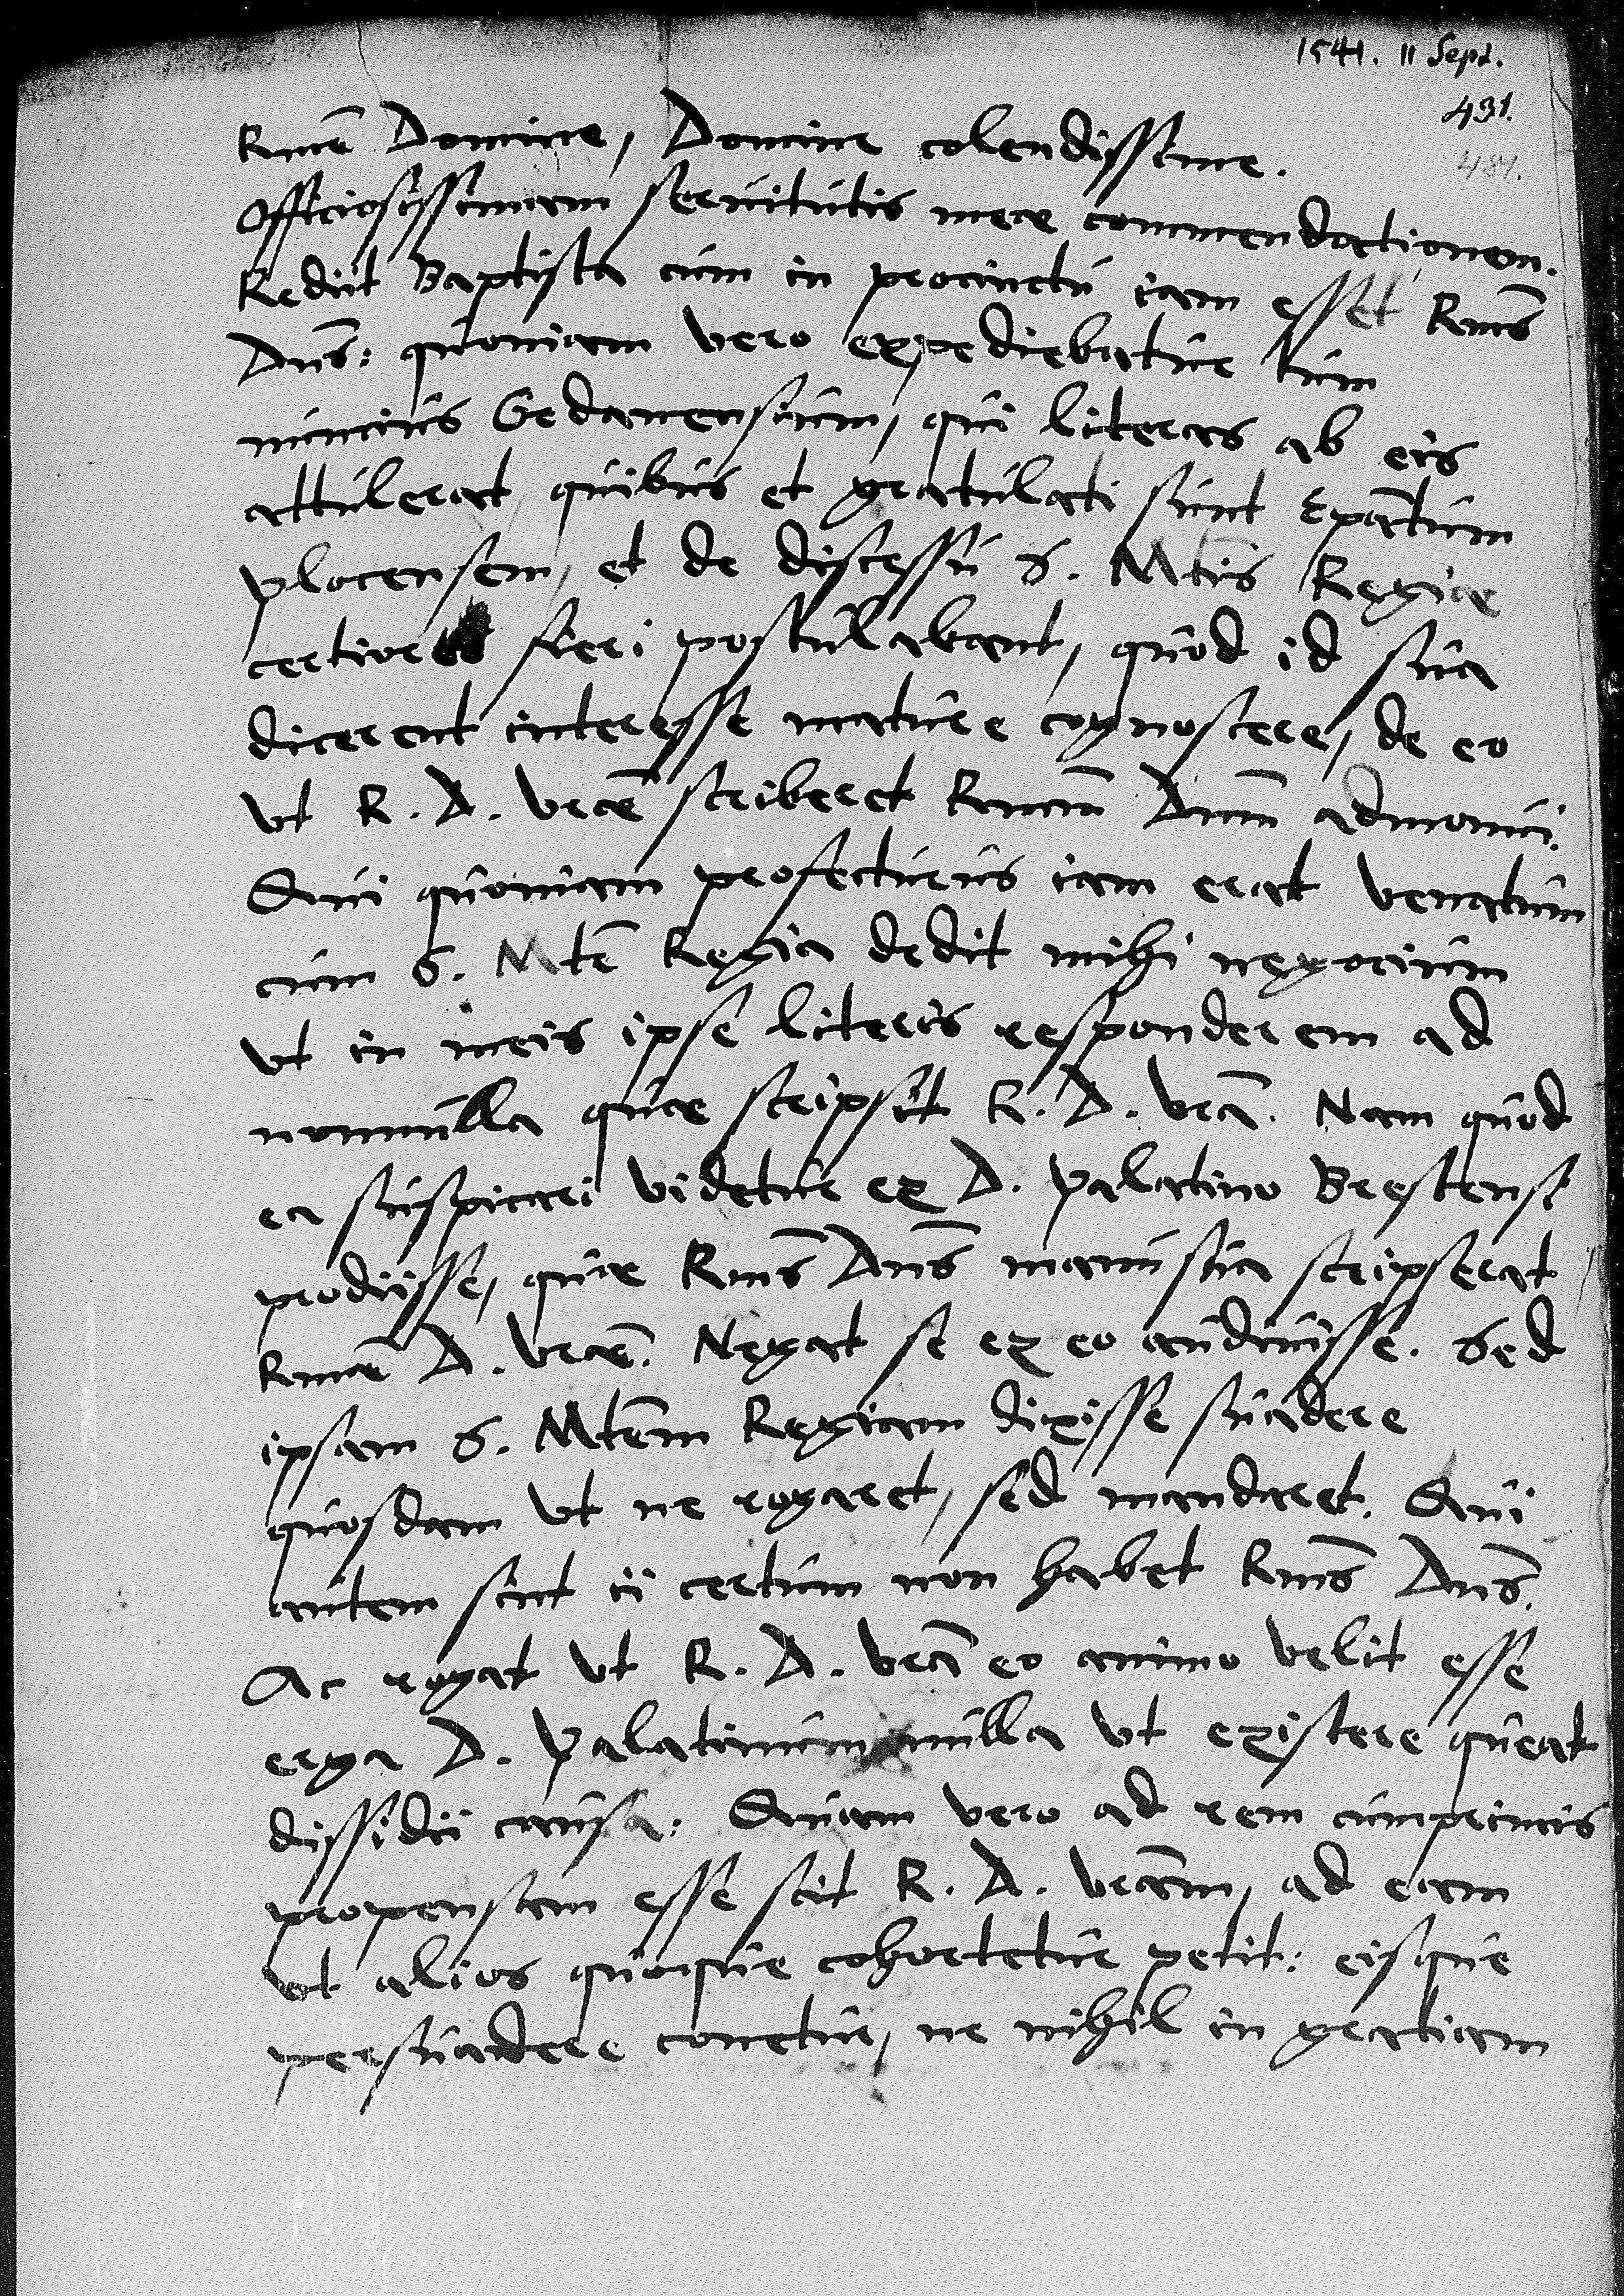 1541. 11 Sept.
431.
481.
Rme Domine, Domine colendissime.
Officiosissimam servitutis meae commendationem.
Rediit Baptista cum in procinctu iam esset Rmus
Dns: quoniam vero expediebatur tum
nuncius Gedanensium, qui literas ab eis
attulerat, quibus et gratulati sunt Epatum
plocensem, et de discessu S. Mtis Regiae
certiores fieri postulabant, quod id sua
dicerent interesse mature cognoscere, de eo
ut R. D. vrae scriberet Rmum Dnum admonui.
Qui quoniam profecturus iam erat venatum
cum S. Mte Regia dedit mihi negocium
ut in meis ipse literis responderem ad
nonnulla quae scripsit R. D. vra. Nam quod
ea suspicari videtur ex D. Palatino Brestensi
prodiisse, quae Rmus Dns manu sua scripserat
Rmae D. vrae. Negat se ex eo audivisse. Sed
ipsam S. Mtem Regiam dixisse suadere
quosdam ut ne rogaret, sed mandaret. Qui
autem sint ii certum non habet Rmus Dns.
Ac rogat ut R. D. vra eo animo velit esse
erga D. Palatinum nulla ut existere queat
dissidii causa: Quam vero ad rem cumprimis
propensam esse scit R. D. vram, ad eam
ut alios quoque cohortetur petit: eisque
persuadere conetur, ne nihil in gratiam